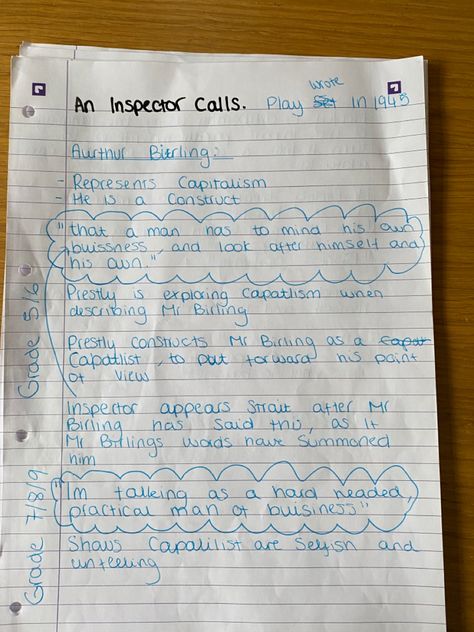 wrote
An Inspector Calls. Play Set in 1945
Aurthur Bierling:
- Represents Capitalism
- He is a Construct
"that a man has to mind his own
buissness, and look after himself and
his own."
Prestly is exploring Capatlism when
describing Mr Birling
Prestly constructs Mr Birling as a Capat
Capatlist, to put forward his point
of view
Inspector appears Strait after Mr
Birling has said this, as if
Mr Birlings words have Summoned
him
"Im talking as a hard headed,
practical man of buisiness"
Shows Capatilist are Selfish and
unfeeling
Grade 5/6
Grade 7/8/9